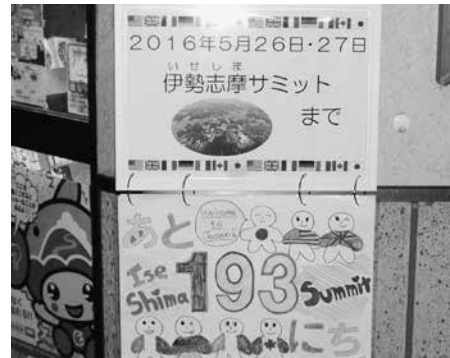 2016年5月26日・27日
いせしま
伊勢志摩サミット
まで
あと
Welcome
to
Ise
Shima
193
Summit
にち